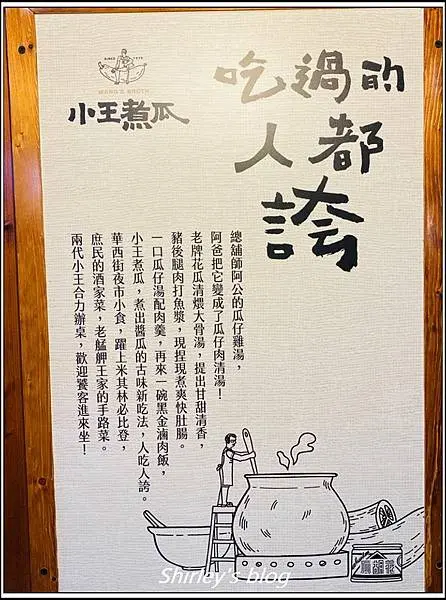 SINCE 1975
WANG'S BROTH
小王煮瓜
吃過的
人都
誇
總舖師阿公的瓜仔雞湯，
阿爸把它變成了瓜仔肉清湯！
老牌花瓜清燉大骨湯，提出甘甜清香，
豬後腿肉打魚漿，現捏現煮爽快肚腸。
一口瓜仔湯配肉羹，再來一碗黑金滷肉飯，
小王煮瓜，煮出醬瓜的古味新吃法，人吃人誇。
華西街夜市小食，躍上米其林必比登，
庶民的酒家菜，老艋舺王家的手路菜。
兩代小王合力辦桌，歡迎饕客進來坐！
Shirley's blog